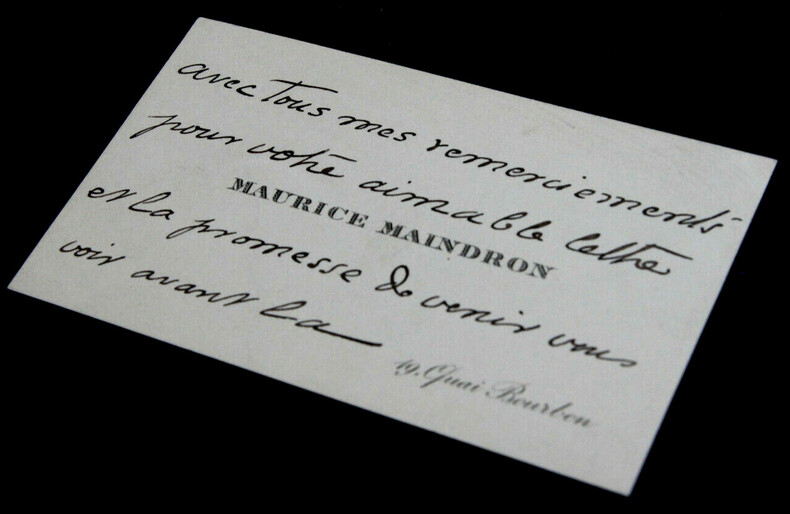 avec tous mes remerciements
pour votre aimable lettre
MAURICE MAINDRON
et la promesse de venir vous
voir avant la
19, Quai Bourbon